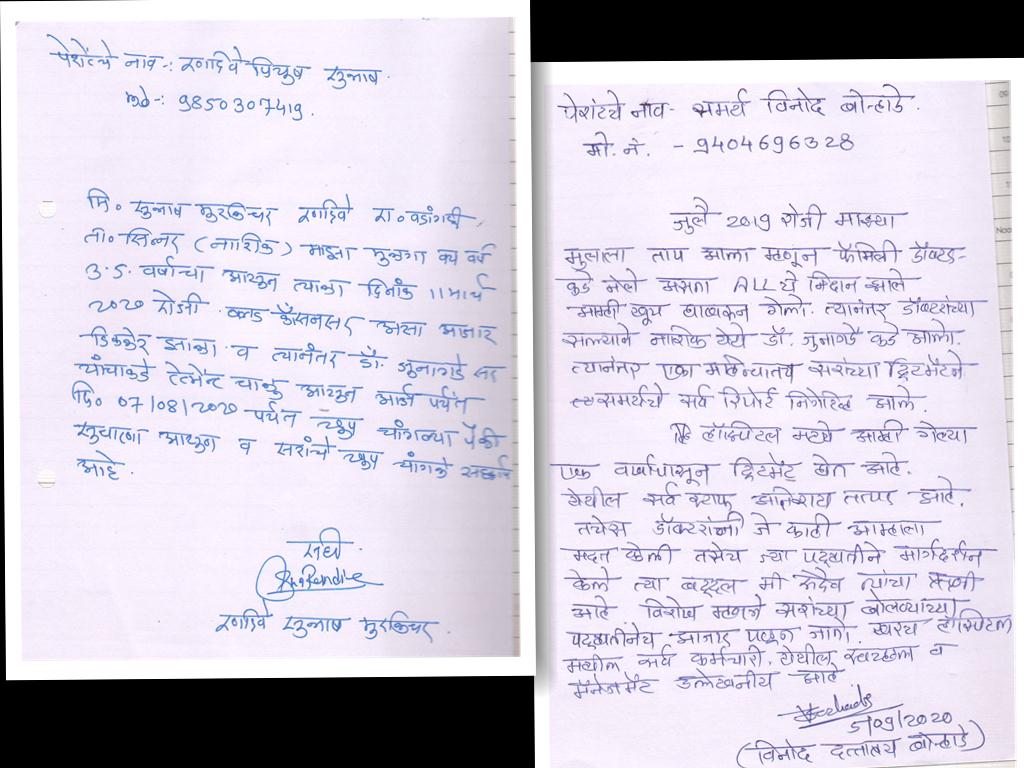 पेशंटचे नाव -: रणदिवे पियुष सुभाष.
मो -: 9850307419.
मि. सुभाष मुरलिधर रणदिवे रा. वडांगळी,
ता. सिन्नर (नाशिक) माझा मुलगा वय वर्षे
3.5 वर्षाचा असुन त्याला दिनांक 11 मार्च
2020 रोजी ब्लड कॅन्सर असा आजार
डिक्लेर झाला व त्यानंतर डॉ. जुनागडे सर
यांचाकडे चालु असुन आज पर्यंत
दि. 07/08/2020 पर्यंत खुप चांगल्या पैकी
सुधारणा असुन व सरांचे खुप चांगले
आहे.
सही
रणदिवे सुभाष मुरलिधर.
पेशंटचे नाव - समर्थ विनोद बोऱ्हाडे.
मो. नं. - 9404696328
जुलै 2019 रोजी माझ्या
मुलाला ताप आला म्हणून फॅमिली डॉक्टर-
कडे गेले असता ALL चे निदान झाले
आम्ही खूप घाबरून गेलो. त्यानंतर डॉक्टरांच्या
सल्ल्याने नाशिक येथे डॉ. जुनागडे कडे आलो.
त्यानंतर एका महिन्यातच सरांच्या ट्रिटमेंटने
समर्थचे सर्व रिपोर्ट निगेटिव्ह आले.
हॉस्पिटल मध्ये आम्ही गेल्या
एक वर्षापासून ट्रिटमेंट घेत आहे.
येथील सर्व स्टाफ अतिशय तत्पर आहे.
तसेच डॉक्टरांनी जे काही आम्हाला
मदत केली तसेच ज्या पद्धतीने मार्गदर्शन
केले त्या बद्दल मी सदैव त्यांचा ऋणी
आहे. विशेष म्हणजे सरांच्या बोलण्याच्या
पद्धतीनेच आजार पळून जातो. खरंच हॉस्पिटल
मधील सर्व कर्मचारी, येथील स्वच्छता व
मॅनेजमेंट उल्लेखनीय आहे
5/09/2020
(विनोद दत्तात्रय बोऱ्हाडे)